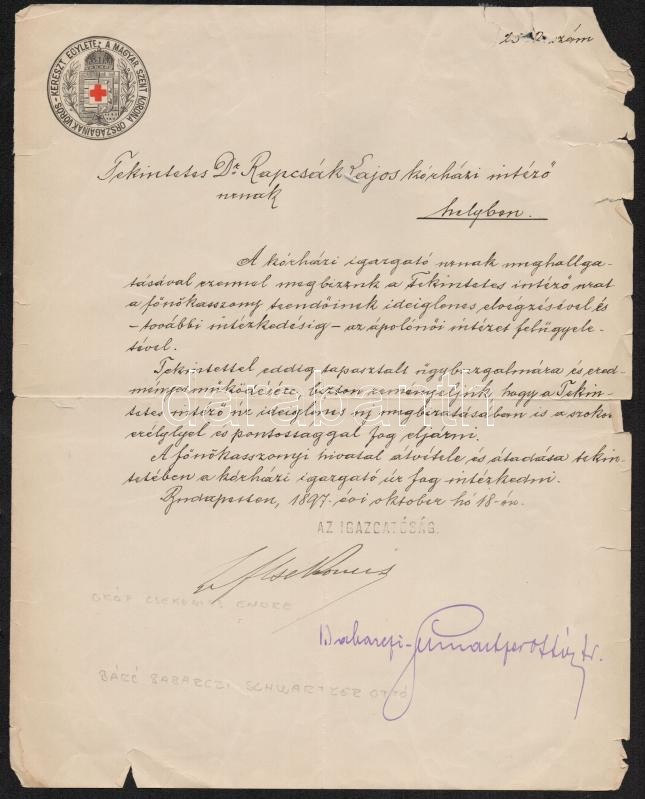 A MAGYAR SZENT KORONA ORSZÁGAINAK VÖRÖS-KERESZT EGYLETE
szám
Tekintetes Dr. Rapcsák Lajos kórházi intéző
urnak
helyben.
A kórházi igazgató urnak meghallga-
tásával ezennel megbizzuk a Tekintetes intéző urat
a főnökasszony teendőinek ideiglenes elvégzésével és
- további intézkedésig - az ápolónői intézet felügyele-
tével.
Tekintettel eddig tapasztalt ügybuzgalmára és ered-
ményes működésére, bizton reméljük, hogy a Tekin-
tetes intéző ur ideiglenes uj megbizatásában is a szokott
erélylyel és pontossággal fog eljárni.
A főnökasszonyi hivatal átvitele és átadása tekin-
tetében a kórházi igazgató úr fog intézkedni.
Budapesten, 1897. évi október hó 18-án.
AZ IGAZGATÓSÁG.
Csekonics
GRÓF CSEKONICS ENDRE
Babarczi Schwartzer Ottó dr.
BÁRÓ BABARCZI SCHWARTZER OTTÓ
darabanth